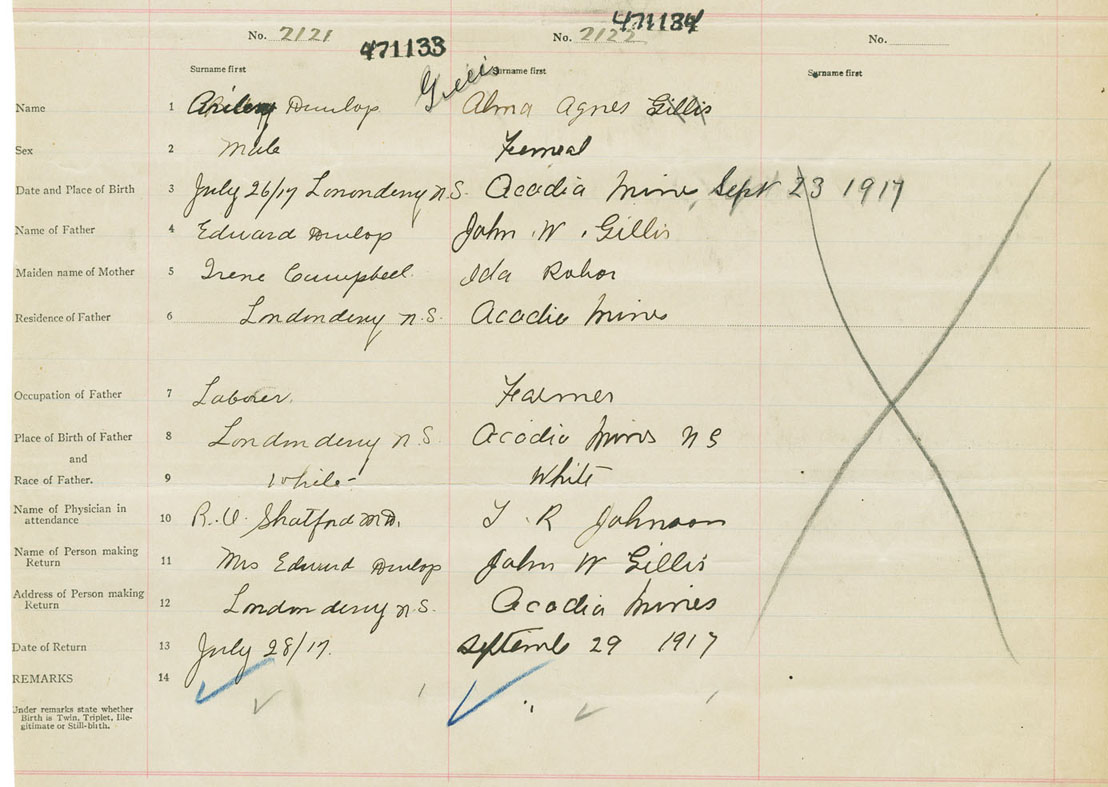 No. 2121 471133 No. 2122 471134 No.
Surname first Gillis Surname first Surname first
Name 1 Dunlop Alma Agnes Gillis
Sex 2 Male Femeal
Date and Place of Birth 3 July 26/17 Lononderry N.S. Acadia Mine, Sept 23 1917
Name of Father 4 Edward Dunlop John W. Gillis
Maiden name of Mother 5 Irene Campbell Ida
Residence of Father 6 Londonderry N.S. Acadia Mines
Occupation of Father 7 Laborer. Farmer
Place of Birth of Father 8 Londonderry N.S. Acadia Mines N S
and
Race of Father. 9 White White
Name of Physician in
attendance 10 R. V. Shatford M.D. T. R Johnson
Name of Person making
Return 11 Mrs Edward Dunlop John W Gillis
Address of Person making
Return 12 Londonderry N.S. Acadia Mines
Date of Return 13 July 28/17. Septemb 29 1917
REMARKS 14
Under remarks state whether
Birth is Twin, Triplet, Ille-
gitimate or Still-birth.